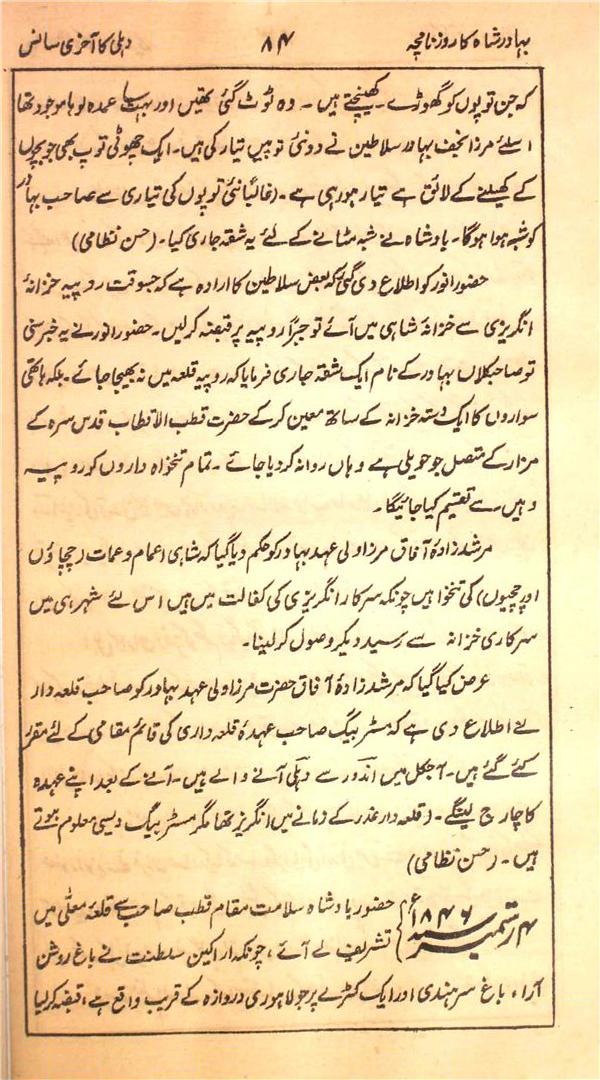 بہادر شاہ کا روزنامچہ ۸۴ دہلی کا آخری سانس
کہ جن توپوں کو گھوڑے۔ کھینچتے ہیں۔ وہ ٹوٹ گئی تھیں اور بہت سا عمدہ لوہا موجود تھا
اسلئے مرزا نجف بہادر سلاطین نے دو نئی توپیں تیار کی ہیں۔ ایک چھوٹی توپ بھی جو بچوں
کے کھیلنے کے لائق ہے تیار ہو رہی ہے۔ (غالباً نئی توپوں کی تیاری سے صاحب بہادر
کو شبہ ہوا ہوگا۔ بادشاہ نے شبہ مٹانے کے لئے یہ شقہ جاری کیا۔ (حسن نظامی)
حضور انور کو اطلاع دی گئی کہ بعض سلاطین کا ارادہ ہے کہ جسوقت روپیہ خزانۂ
انگریزی سے خزانۂ شاہی میں آئے تو جبراً روپیہ پر قبضہ کرلیں۔ حضور انور نے یہ خبر سنی
تو صاحبکلاں بہادر کے نام ایک شقہ جاری فرمایا کہ روپیہ قلعہ میں نہ بھیجا جائے۔ بلکہ ہاتھی
سواروں کا ایک دستہ خزانہ کے ساتھ معین کرکے حضرت قطب الاقطاب قدس سرہ کے
مزار کے متصل جو حویلی ہے وہاں روانہ کردیا جائے۔ تمام تنخواہ داروں کو روپیہ
وہیں۔ سے تقسیم کیا جائیگا۔
مرشد زادۂ آفاق مرزا ولی عہد بہادر کو حکم دیا گیا کہ شاہی اعمام و عمات (چچاؤں
اور چچیوں) کی تنخواہیں چونکہ سرکار انگریزی کی کفالت میں ہیں اس لئے شہر ہی میں
سرکاری خزانہ سے رسید دیکر وصول کرلینا۔
عرض کیا گیا کہ مرشد زادۂ آفاق حضرت مرزا ولی عہد بہادر کو صاحب قلعہ دار
نے اطلاع دی ہے کہ مسٹر بیگ صاحب عہدۂ قلعہ داری کی قائم مقامی کے لئے مقرر
کئے گئے ہیں۔ آجکل میں اندور سے دہلی آنے والے ہیں۔ آنے کے بعد اپنے عہدہ
کا چارج لینگے۔ (قلعہ دار غدر کے زمانے میں انگریز تھا مگر مسٹر بیگ دیسی معلوم ہوتے
ہیں۔ (حسن نظامی)
۴ر ستمبر سنہ ۱۸۴۶ء } حضور بادشاہ سلامت مقام قطب صاحب سے قلعۂ معلٰی میں
تشریف لے آئے، چونکہ اراکین سلطنت نے باغ روشن
آراء باغ سرہندی اور ایک کٹرے پر جو لاہوری دروازہ کے قریب واقع ہے، قبضہ کرلیا